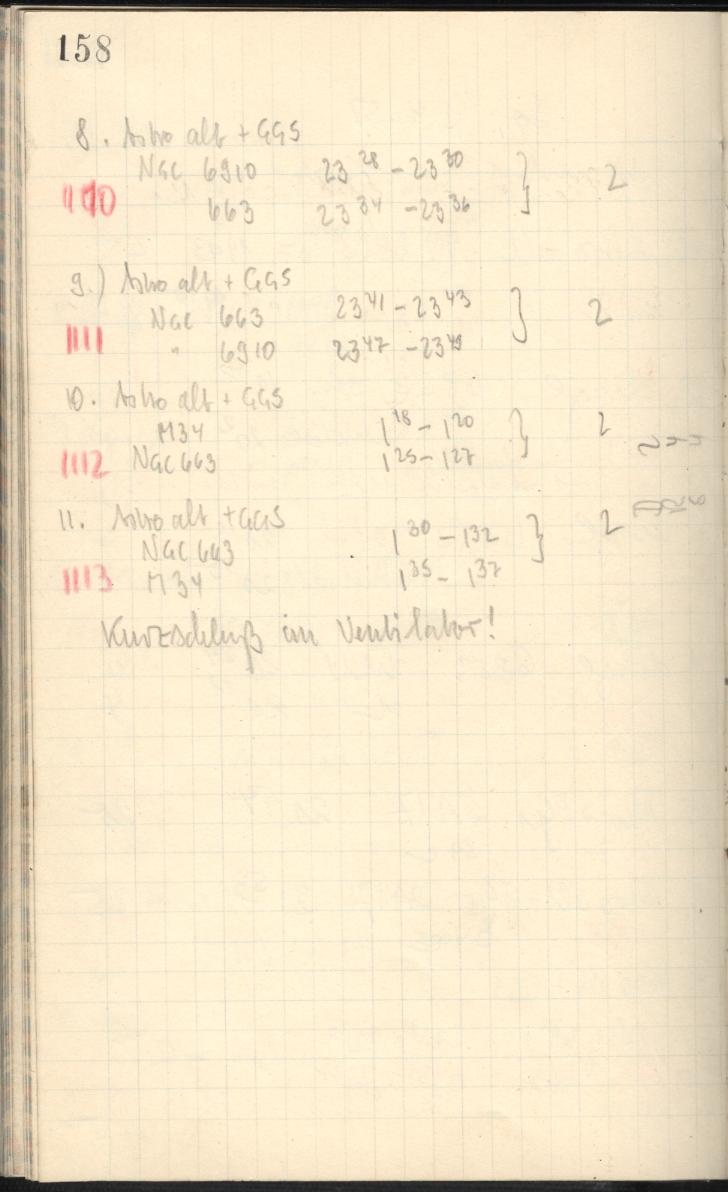 158
8. Astro alt + GG5
NGC 6910 23 28 - 23 30 } 2
1110 663 23 34 - 23 36
9.) Astro alt + GG5
NGC 663 23 41 - 23 43 } 2
1111 " 6910 23 47 - 23 49
10. Astro alt + GG5
M34 1 18 - 1 20 } 2
1112 NGC 663 1 25 - 1 27
11. Astro alt + GG5
NGC 663 1 30 - 1 32 } 2
1113 M 34 1 35 - 1 37
Kurzschluß im Ventilator!